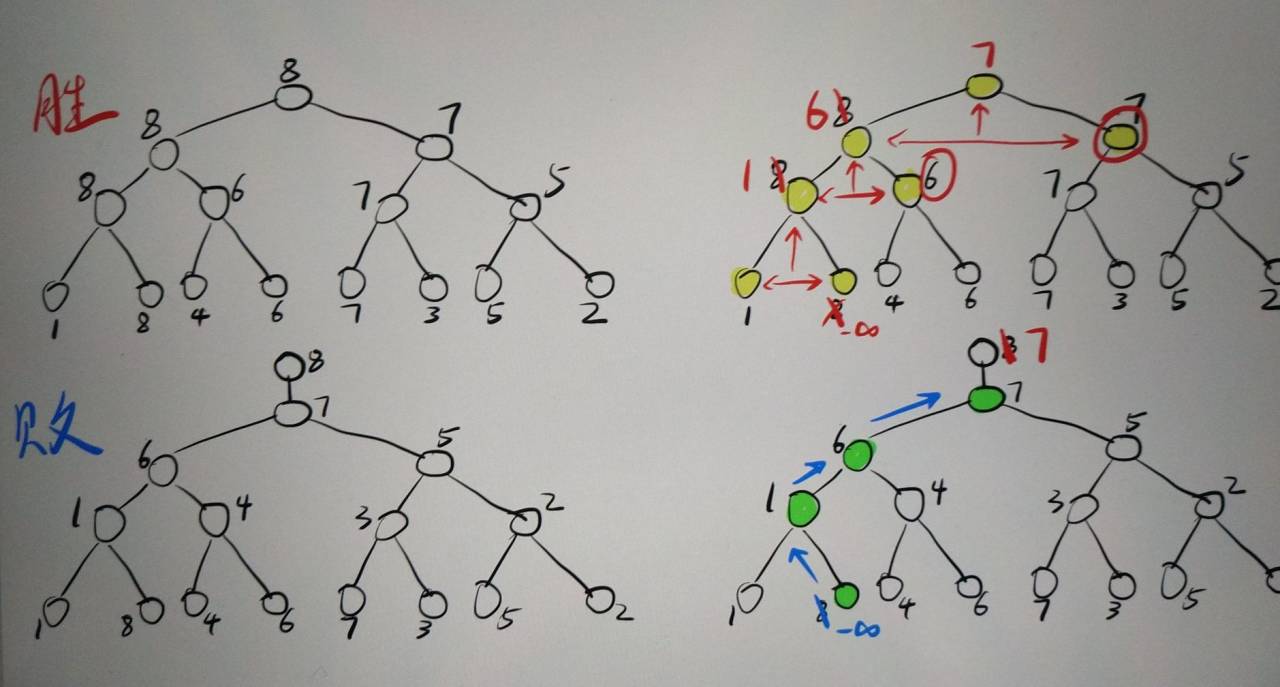 胜
8
8 7
8 6 7 5
1 8 4 6 7 3 5 2
7
6 8 7
1 8 6 7 5
1 8 4 6 7 3 5 2
-∞
败
8
7
6 5
1 4 3 2
1 8 4 6 7 3 5 2
8 7
7
6 5
1 4 3 2
1 8 4 6 7 3 5
-∞